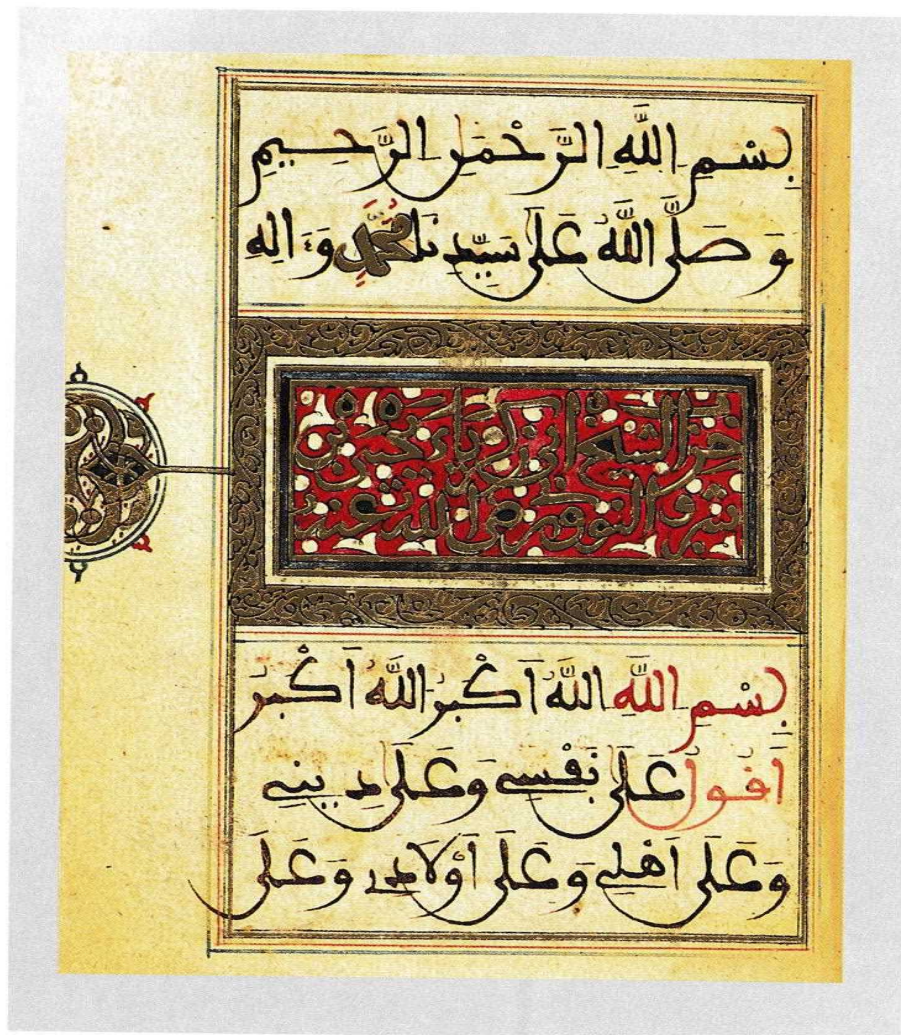 بِسْمِ اللَّهِ الرَّحْمَنِ الرَّحِيمِ
وَصَلَّى اللَّهُ عَلَى سَيِّدِنَا مُحَمَّدٍ وَءَالِهِ
حزب الشيخ أبي زكرياء يحيى بن
شرف النووي رضي الله تعالى عنه
بِسْمِ اللَّهِ اللَّهُ أَكْبَرُ اللَّهُ أَكْبَرُ
أَقُولُ عَلَى نَفْسِي وَعَلَى دِينِي
وَعَلَى أَهْلِي وَعَلَى أَوْلَادِي وَعَلَى